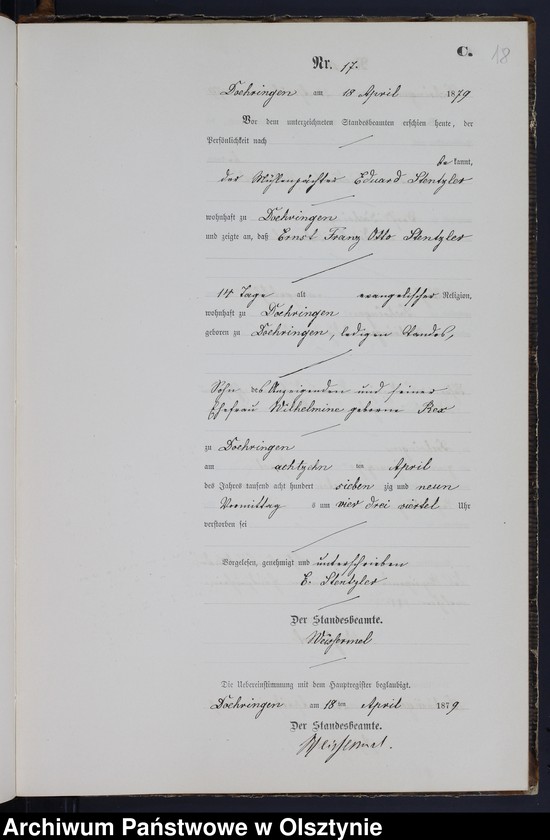 C. 18
Nr. 17.
Doehringen am 18 April 1879
Vor dem unterzeichneten Standesbeamten erschien heute, der
Persönlichkeit nach
be kannt,
der Mühlenpächter Eduard Stentzler
wohnhaft zu Doehringen
und zeigte an, daß Ernst Franz Otto Stentzler
14 Tage alt evangelischer Religion,
wohnhaft zu Doehringen
geboren zu Doehringen, ledigen Standes,
Sohn des Anzeigenden und seiner
Ehefrau Wilhelmine geborne Rex
zu Doehringen
am achtzehn ten April
des Jahres tausend acht hundert sieben zig und neun
Vormittag s um vier drei viertel Uhr
verstorben sei
Vorgelesen, genehmigt und unterschrieben
E. Stentzler
Der Standesbeamte.
Weissermel
Die Uebereinstimmung mit dem Hauptregister beglaubigt.
Doehringen am 18 ten April 1879
Der Standesbeamte.
Weissermel.
Archiwum Państwowe w Olsztynie